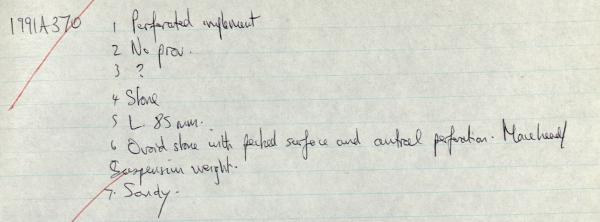 1991A370 1 Perforated implement
2 No prov.
3 ?
4 Stone
5 L. 85 mm.
6 Ovoid stone with pecked surface and central perforation. Macehead/
Suspension weight.
7. Sandy.